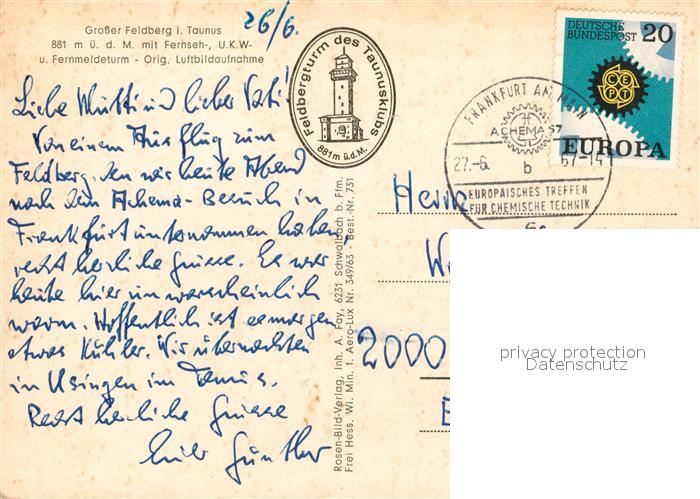 Großer Feldberg i. Taunus
881 m ü. d. M. mit Fernseh-, U.K.W-
u. Fernmeldeturm - Orig. Luftbildaufnahme
26/6.
Liebe Mutti und lieber Vati!
Von einem Ausflug zum
Feldberg, den wir heute Abend
nach dem Achema-Besuch in
Frankfurt unternommen haben,
recht herzliche Grüsse. Es war
heute hier unwarscheinlich
warm. Hoffentlich ist es morgen
etwas kühler. Wir übernachten
in Usingen im Taunus.
Recht herzliche Grüsse
Günther
Feldbergturm des Taunusklubs
881m ü.d.M.
Rosen-Bild-Verlag, Inh. A. Fay, 6231 Schwalbach b. Ffm.
Frei Hess. Wi. Min. f. Aero-Lux Nr. 349/63 - Best.-Nr. 731
DEUTSCHE
BUNDESPOST 20
CEPT
EUROPA
FRANKFURT AM MAIN
ACHEMA 67
27.-6. b 67-14
EUROPÄISCHES TREFFEN
FÜR CHEMISCHE TECHNIK
Herrn
2000
privacy protection
Datenschutz